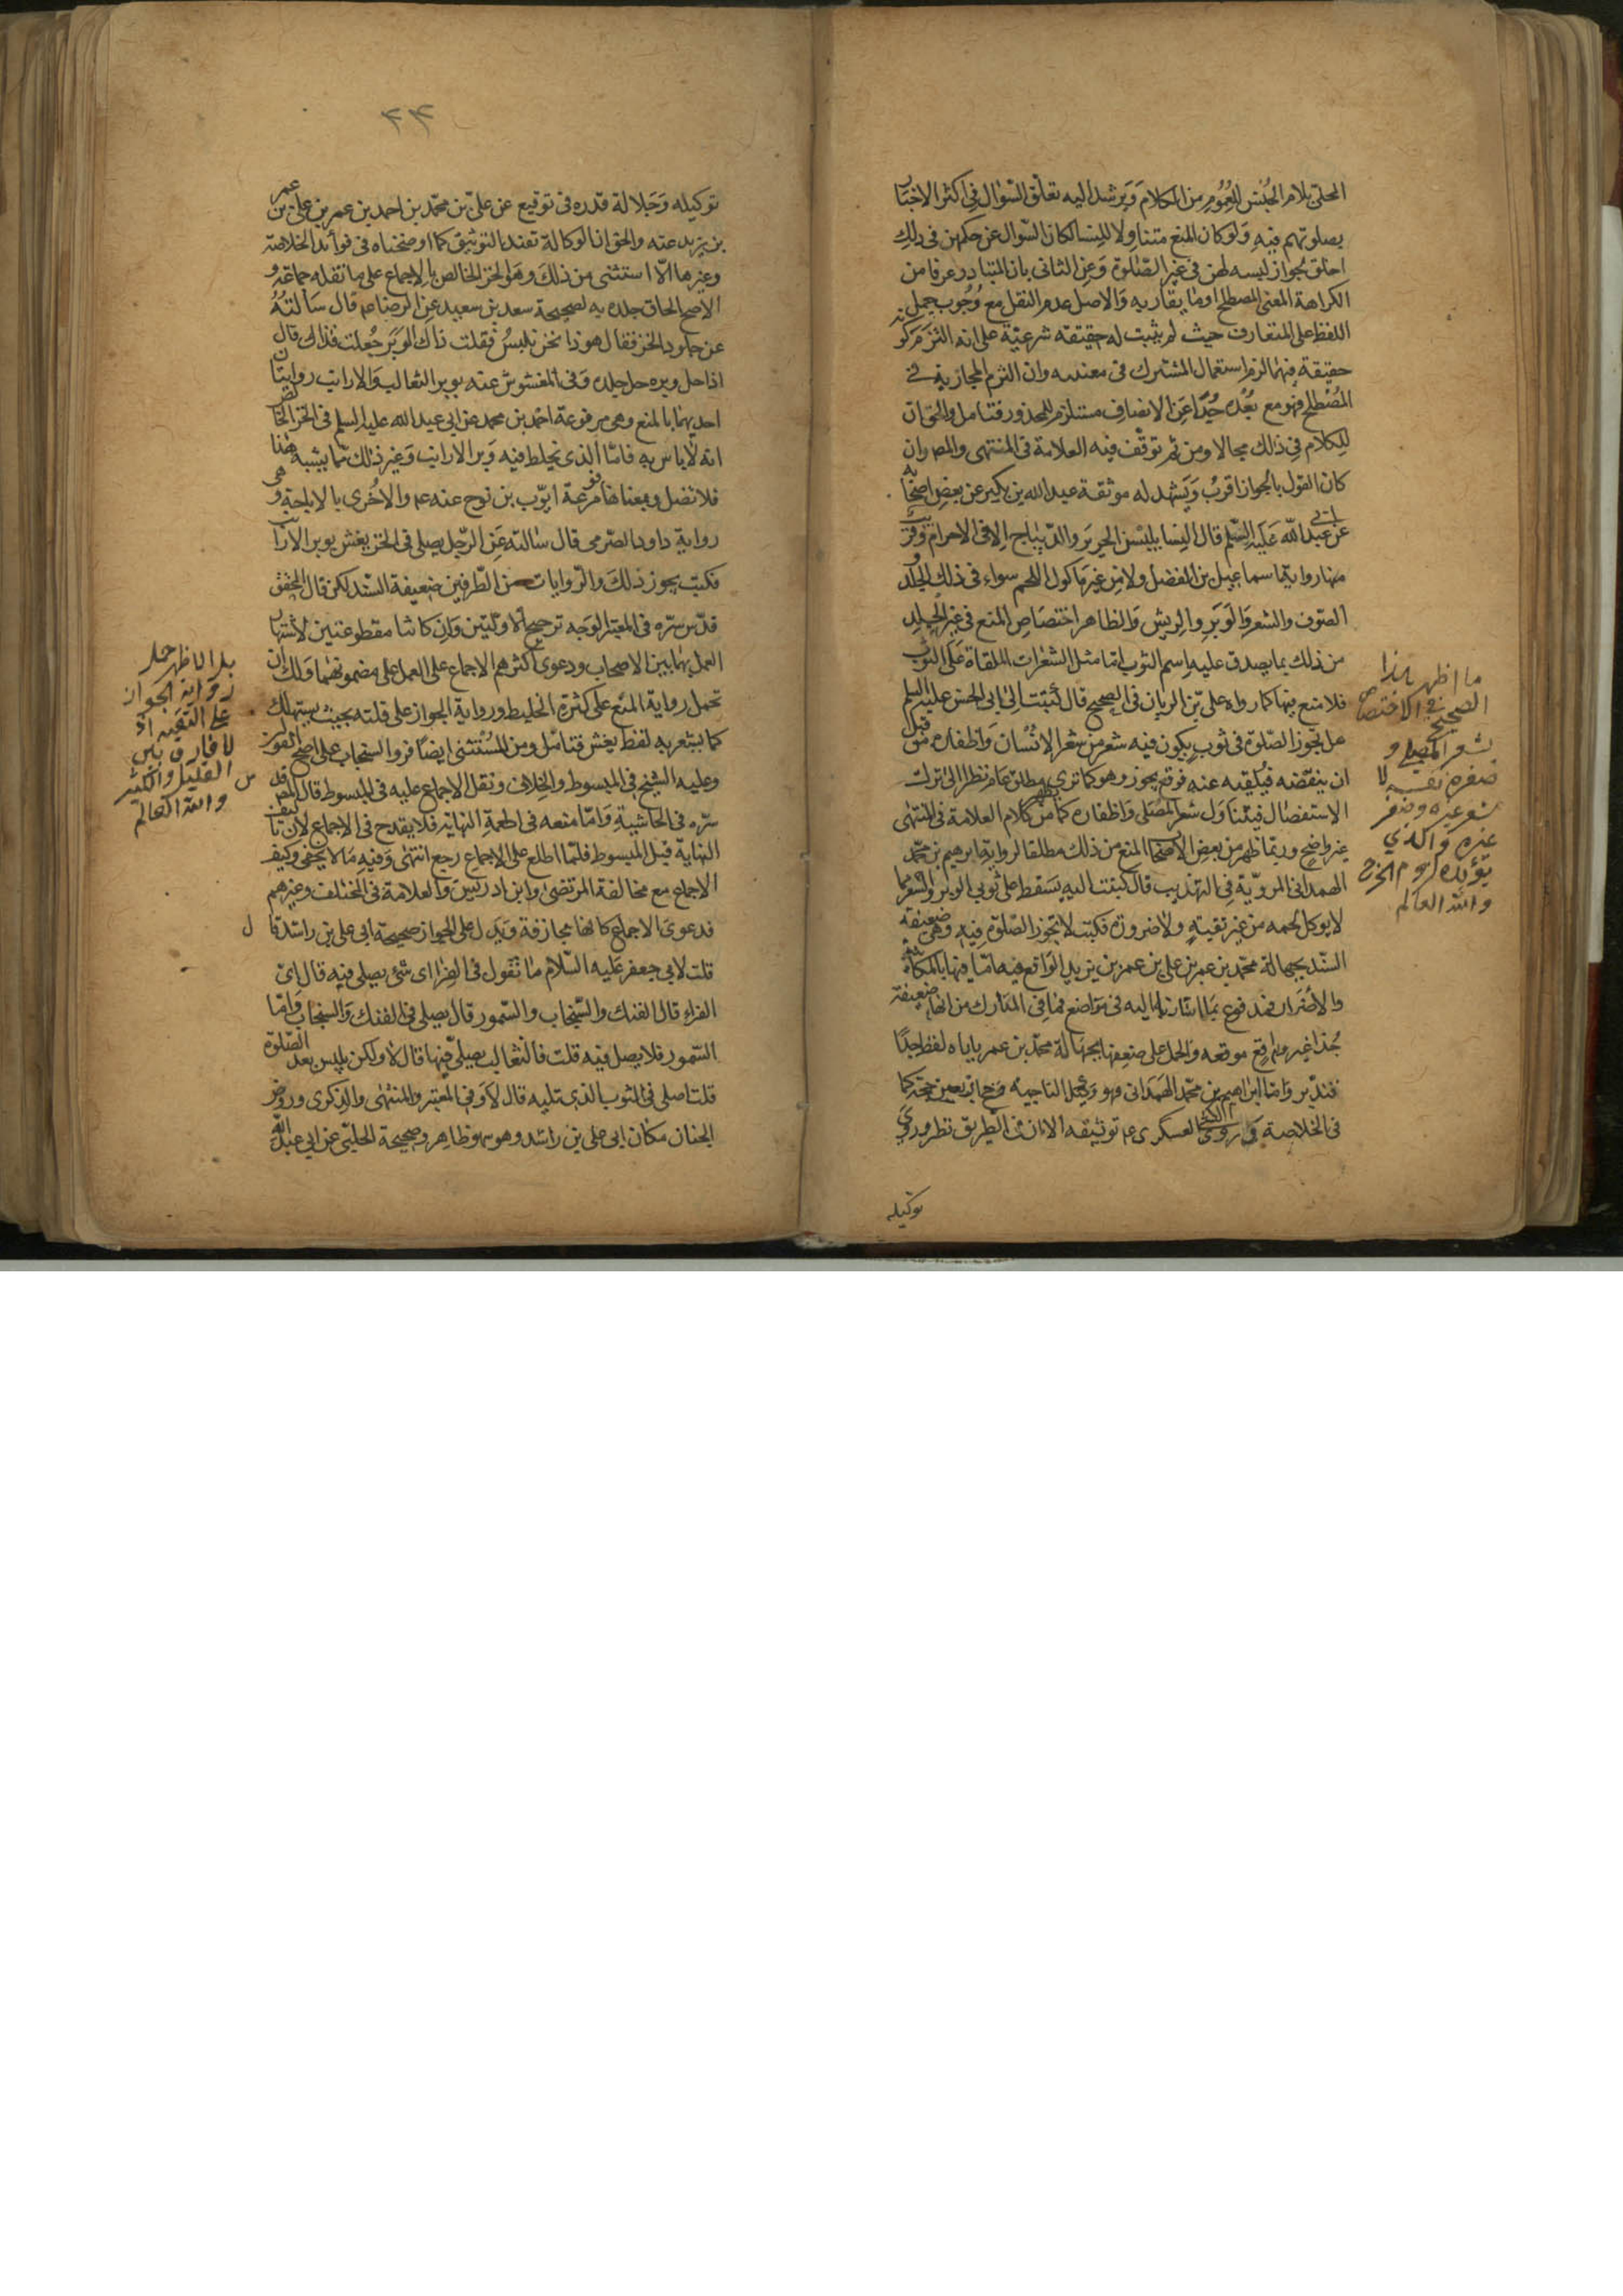 المحلّى بلام الجنس للعموم من الكلام ويرشد اليه تعلق السؤال في اكثر الاخبار
بصلوتهم فيه ولو كان المنع متناولا للنساء لكان السؤال عن حكمهن في ذلك
احق بجواز لبسه لهن في غير الصلوة وعن الثاني بان المتبادر عرفا من
الكراهة المعنى المصطلح او ما يقاربه والاصل عدم النقل مع وجوب حمل
اللفظ على المتعارف حيث لم يثبت له حقيقة شرعية على انه التزم كونه
حقيقة فيهما لزم استعمال المشترك في معنييه وان التزم المجازية في
المصطلح فهو مع بعده جدا عن الانصاف مستلزم للمحذور فتامل والحق ان
للكلام في ذلك مجالا ومن ثم توقف فيه العلامة في المنتهى والمص وان
كان القول بالجواز اقرب ويشهد له موثقة عبد الله بن بكير عن بعض اصحابه
عن ابي عبد الله عليه السلم قال النسا يلبسن الحرير والديباج الا في الاحرام وقريب
منها رواية اسماعيل بن الفضل ولا من غير ماكول اللحم سواء في ذلك الجلد
الصوف والشعر والوبر والريش والظاهر اختصاص المنع في غير الجلد
من ذلك بما يصدق عليه اسم الثوب اما مثل الشعرات الملقاة على الثوب
فلا منع فيها كما رواه علي بن الريان في الصحيح قال كتبت الى ابي الحسن عليه السلم
هل يجوز الصلوة في ثوب يكون فيه شعر من شعر الانسان واظفاره من قبل
ان ينفضه فيلقيه عنه فوقع يجوز وهو كما ترى مطلق عام نظرا الى ترك
الاستفصال فيتناول شعر المصلى واظفاره كما من كلام العلامة في المنتهى
غير واضح وربما ظهر من بعض الاصحاب المنع من ذلك مطلقا لرواية ابرهيم بن محمد
الهمداني المروية في التهذيب قال كتبت اليه يسقط على ثوبي الوبر والشعر مما
لا يوكل لحمه من غير تقية ولا ضرورة فكتب لا تجوز الصلوة فيه وهي ضعيفة
السند بجهالة محمد بن عمر بن علي بن عمر بن يزيد الواقع فيه واما فيها بالمكاتبة
والاضمار فمدفوع بما اشار اليه في مواضع فما في المدارك من انها ضعيفة
جدا غير واقع موقعه والحمل على ضعفها بجهالة محمد بن عمر ياباه لفظ جدا
فتدبر واما ابراهيم بن محمد الهمداني فهو وكيل الناحية وحج اربعين حجة كما
في الخلاصة وروى الكشي العسكري ع توثيقه الا ان في الطريق نظر وروى
توكيله
ما اظهر لهذا
الصحيح في الاختصاص
بشعر المصلي و
ظفره نفسه لا
شعر غيره وظفر
غيره والذي
يؤيده لزوم الحرج
والله العالم
٢٣
توكيله وجلالة قدره في توقيع عن علي بن محمد بن احمد بن عمر بن علي بن عمر
بن يزيد عنه والحق ان الوكالة تفيد التوثيق كما اوضحناه في فوائد الخلاصة
وغيرها الا استثنى من ذلك وهو الخز الخالص بالاجماع على ما نقله جماعة و
الاصح الحاق جلده به لصحيحة سعد بن سعد عن الرضا ع قال سألته
عن جلود الخز فقال هوذا نحن نلبس فقلت ذاك الوبر جعلت فداك قال
اذا حل وبره حل جلده وفي المغشوش عنه بوبر الثعالب والارانب روايتان
احديهما بالمنع وهي مرفوعة احمد بن محمد عن ابي عبد الله عليه السلم في الخز الخالص
انه لا باس به فاما الذي يخلط فيه وبر الارانب وغير ذلك مما يشبه هذا
فلا تصل وبمعناها مرفوعة ايوب بن نوح عنه ع والاخرى بالاباحة وهي
رواية داود الصرمي قال سالته عن الرجل يصلي في الخز يغش بوبر الارانب
فكتب يجوز ذلك والروايات من الطرفين ضعيفة السند لكن قال المحقق
قدس سره في المعتبر الوجه ترجيح الاوليين وان كانتا مقطوعتين لاشتهار
العمل بهما بين الاصحاب ودعوى اكثرهم الاجماع على العمل على مضمونهما ولك ان
تحمل رواية المنع على كثرة الخليط ورواية الجواز على قلته بحيث يستهلك
كما يشعر به لفظ يغش فتامل ومن المستثنى ايضا فرو السنجاب على اصح القولين
وعليه الشيخ في المبسوط والخلاف ونقل الاجماع عليه في المبسوط قال المص قدس
سره في الحاشية واما منعه في اطعمة النهاية فلا يقدح في الاجماع لان تاليف
النهاية قبل المبسوط فلما اطلع على الاجماع رجع انتهى وفيه ما لا يخفى وكيف
الاجماع مع مخالفة المرتضى وابن ادريس والعلامة في المختلف وغيرهم
فدعوى الاجماع كانها مجازفة ويدل على الجواز صحيحة ابي علي بن راشد قال
قلت لابي جعفر عليه السلام ما تقول في الفرا اى شئ يصلي فيه قال اى
الفراء قال الفنك والسنجاب والسمور قال يصلي في الفنك والسنجاب واما
السمور فلا يصل فيه قلت فالثعالب يصلي فيها قال لا ولكن يلبس بعد الصلوة
قلت اصلي في الثوب الذي تليه قال لا وفي المعتبر والمنتهى والذكرى وروض
الجنان مكان ابي علي بن راشد وهو سهو ظاهر وصحيحة الحلبي عن ابي عبد الله
بل الاظهر حمل
رواية الجواز
على التقية اذ
لا فارق بين
القليل والكثير
والله العالم